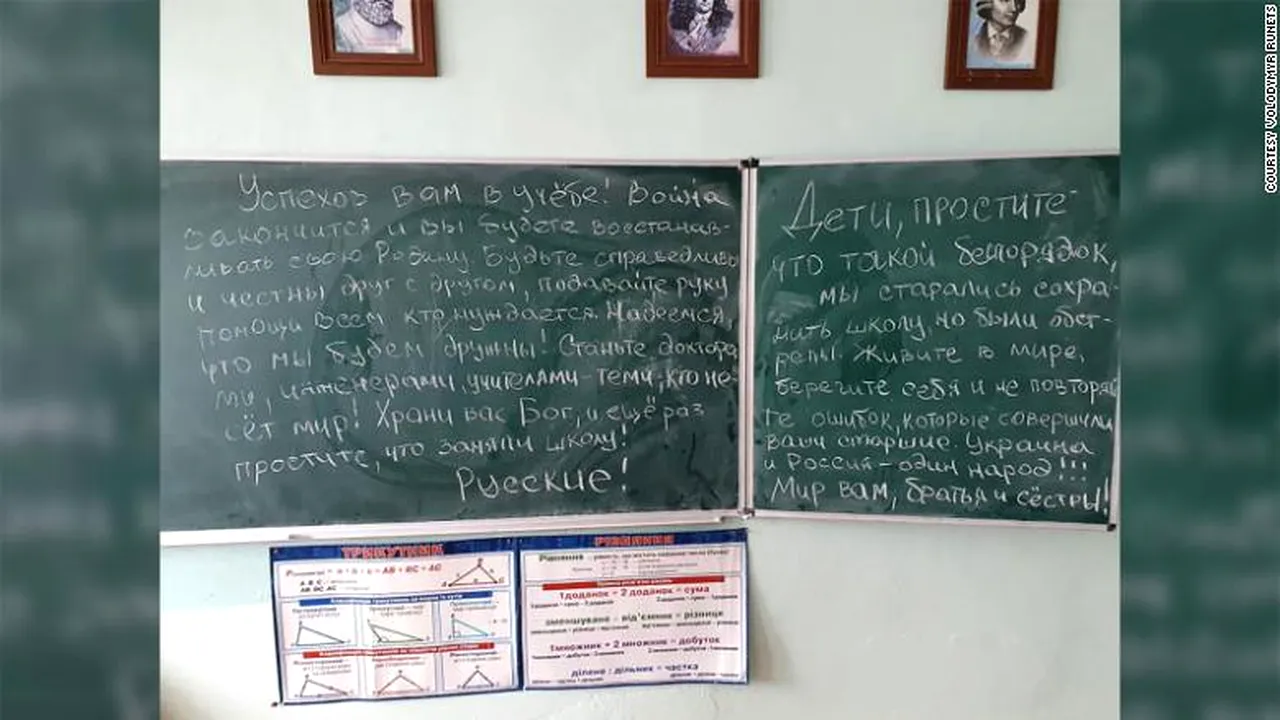 Успехов вам в учёбе! Война
закончится и вы будете восстанав-
ливать свою Родину. Будьте справедливы
и честны друг с другом, подавайте руку
помощи всем кто нуждается. Надеемся,
что мы будем дружны! Станьте доктора
ми, инженерами, учителями - теми, кто не-
сёт мир! Храни вас Бог, и ещё раз
простите, что заняли школу!
Русские!
Дети, простите
что такой беспорядок,
мы старались сохра-
нить школу, но были обст-
релы. Живите в мире,
берегите себя и не повторяй
те ошибок, которые совершили
ваши старшие. Украина
и Россия - один народ!!!
Мир вам, братья и сёстры!
ТРИКУТНИК
= AB + BC + AC
РІВНЯННЯ
Рівняння
1 доданок + 2 доданок = сума
зменшуване - від'ємник = різниця
1 множник • 2 множник = добуток
ділене : дільник = частка
COURTESY VOLODYMYR RUNETS